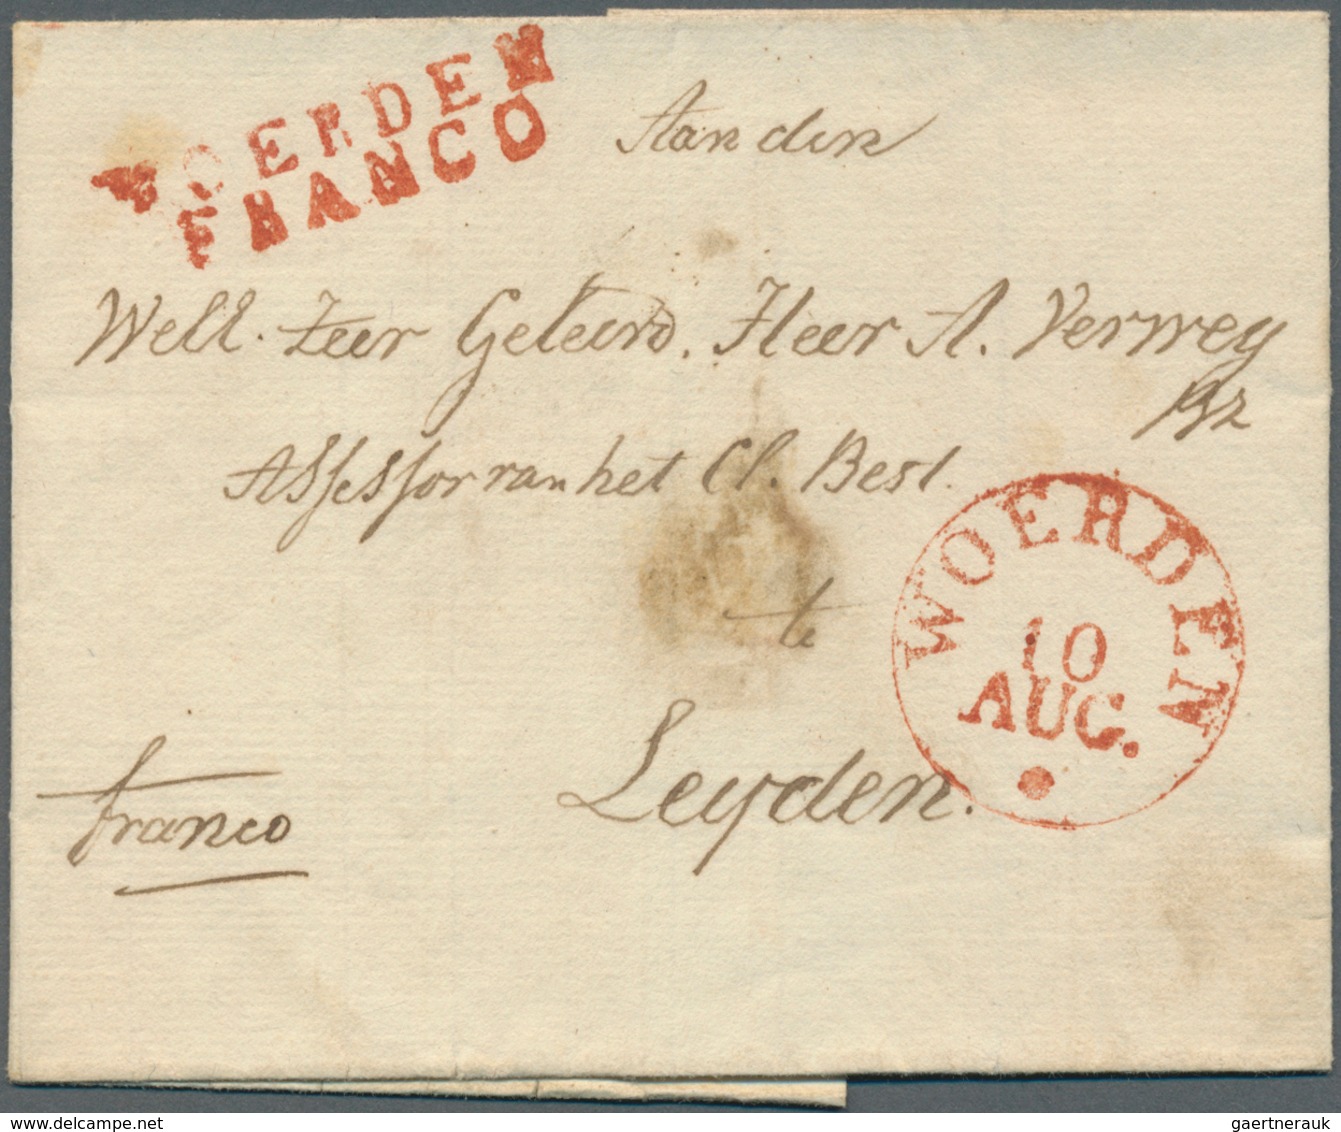 WOERDEN
FRANCO
Aan den
Well. Zeer Geleerd. Heer A. Verwey
Assessor van het Cl. Best.
te
Leyden.
franco
WOERDEN
10
AUG.
www.delcampe.net
gaertnerauk